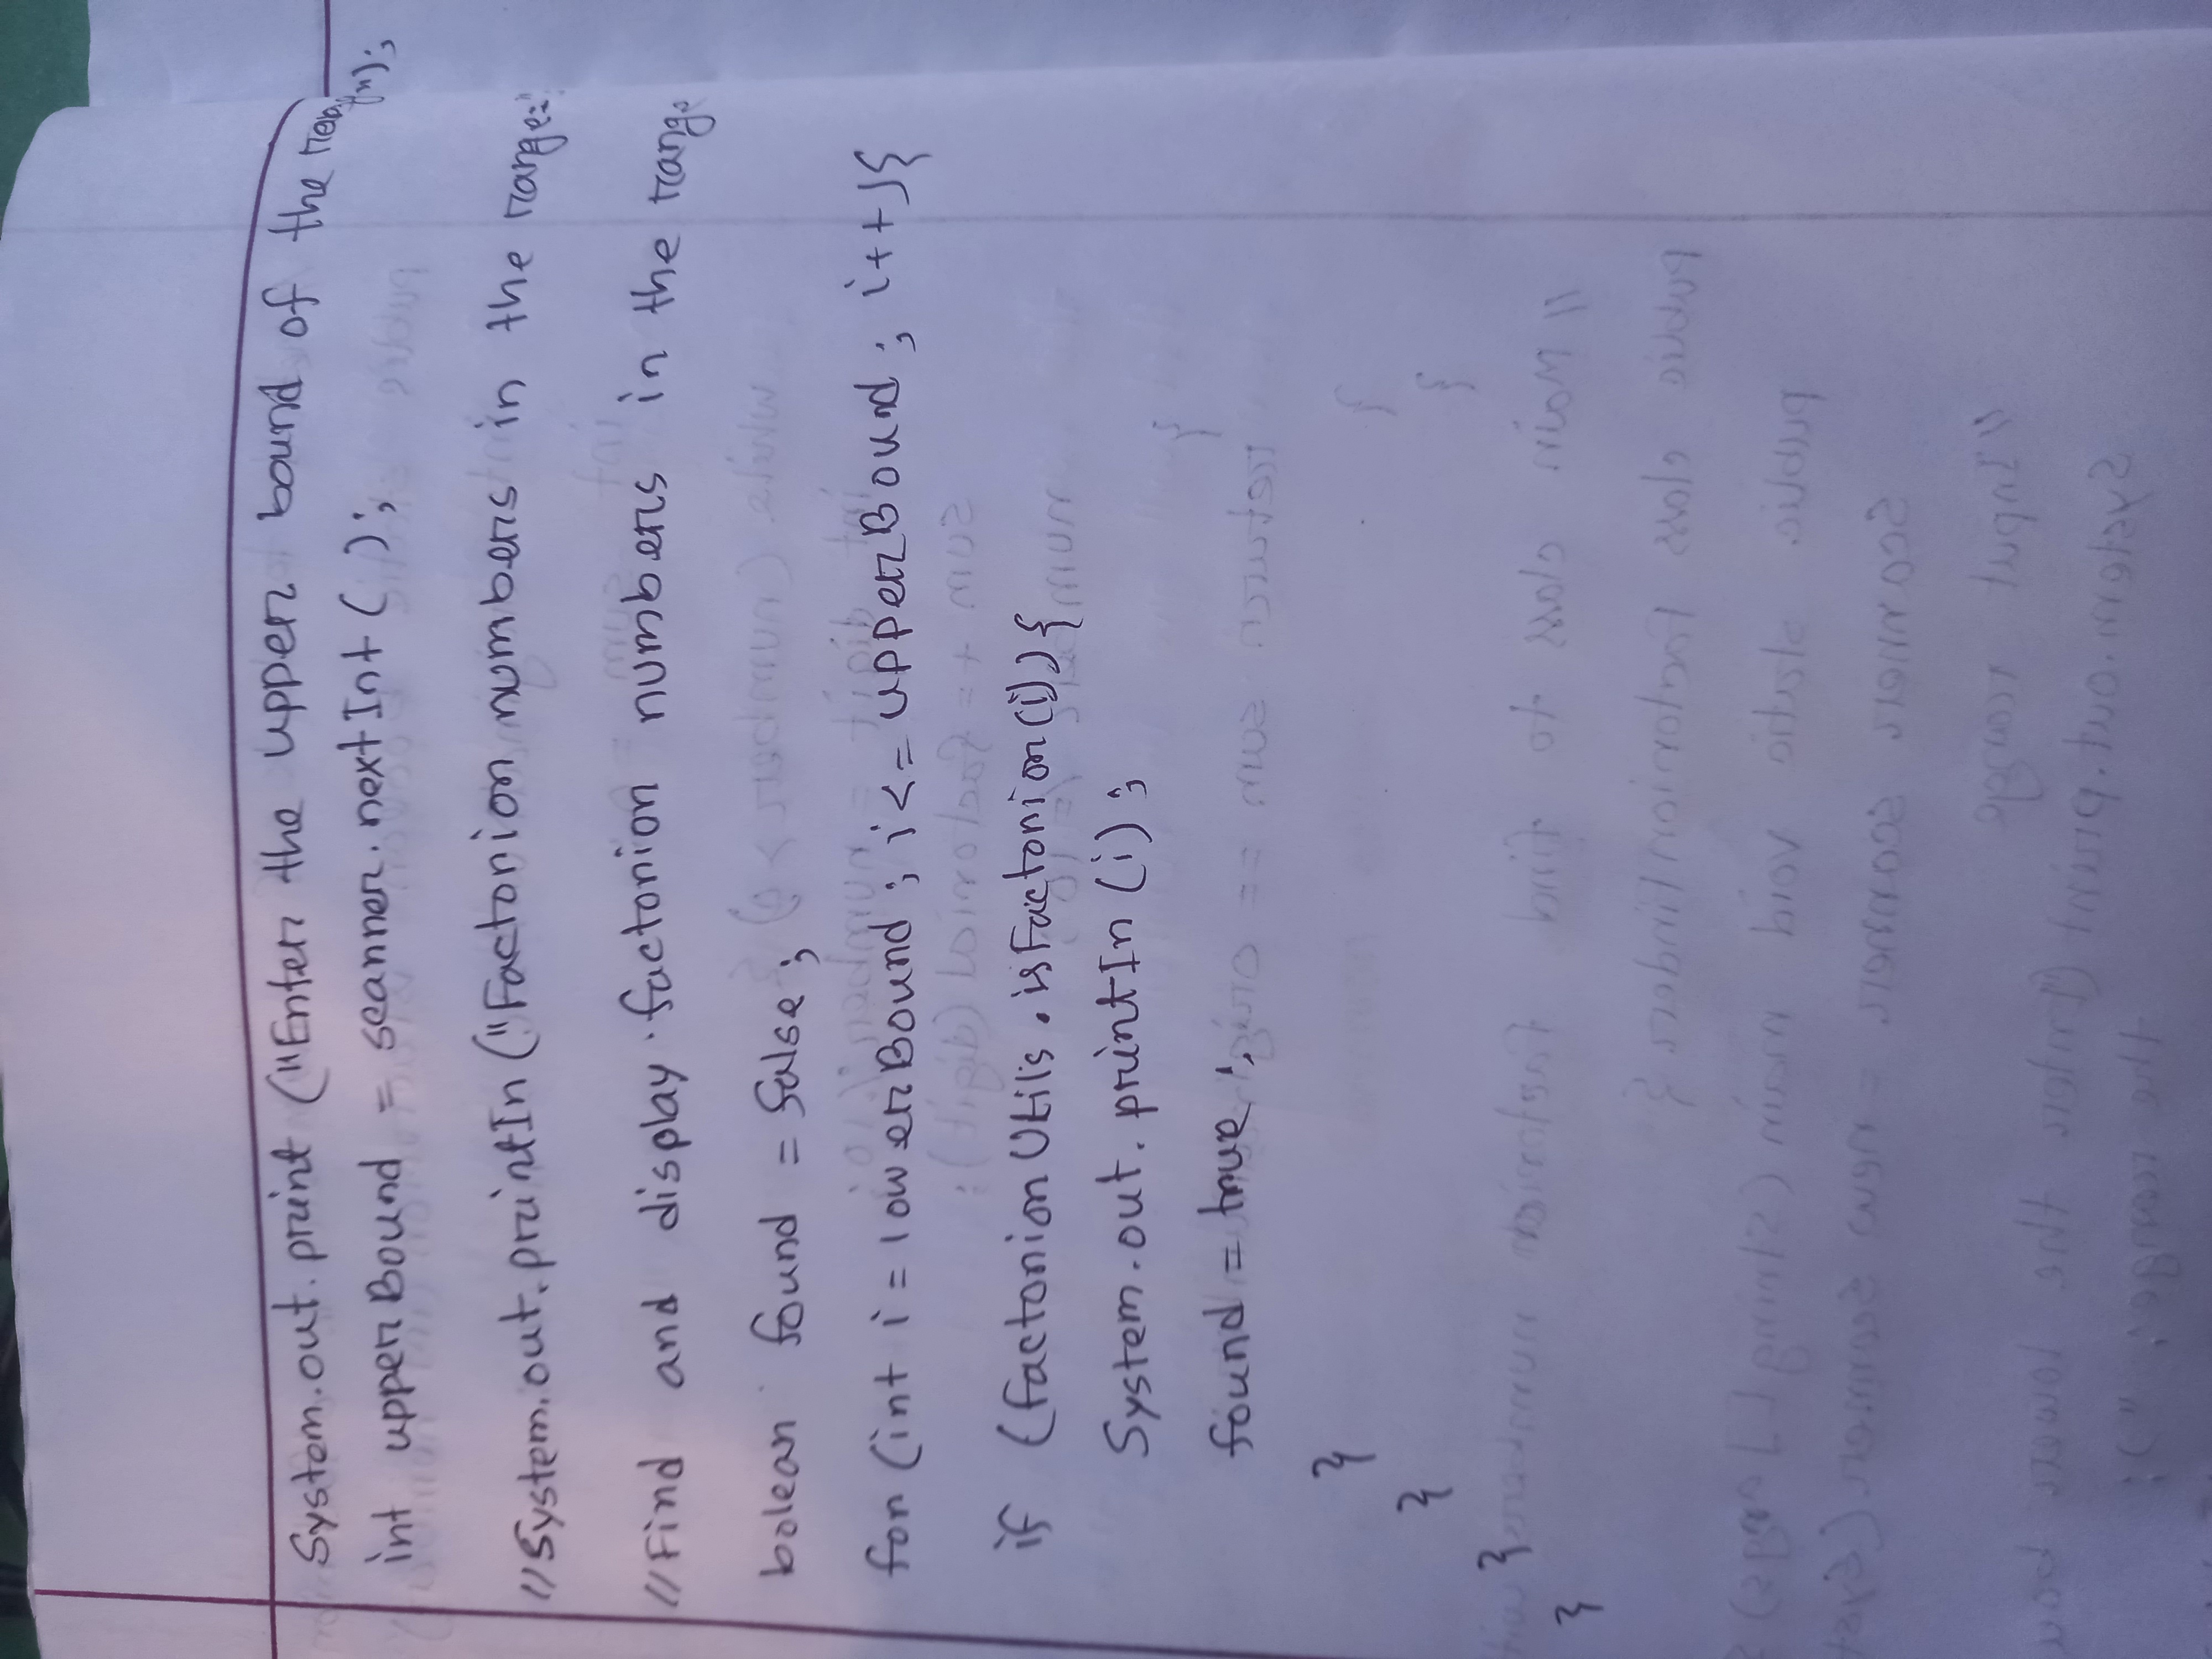 System.out.print ("Enter the upper bound of the
int upperBound = scanner.nextInt ( );
");
//System.out.printIn ("Factonion numbers in the range:"
//Find and display factonion numbers in the rang
bolean found = false;
for (int i = lowerBound; i <= upperBound; i++){
if (factonionUtils.isFactonion(i)){
System.out.printIn (i);
found = true;
}
}
}
}